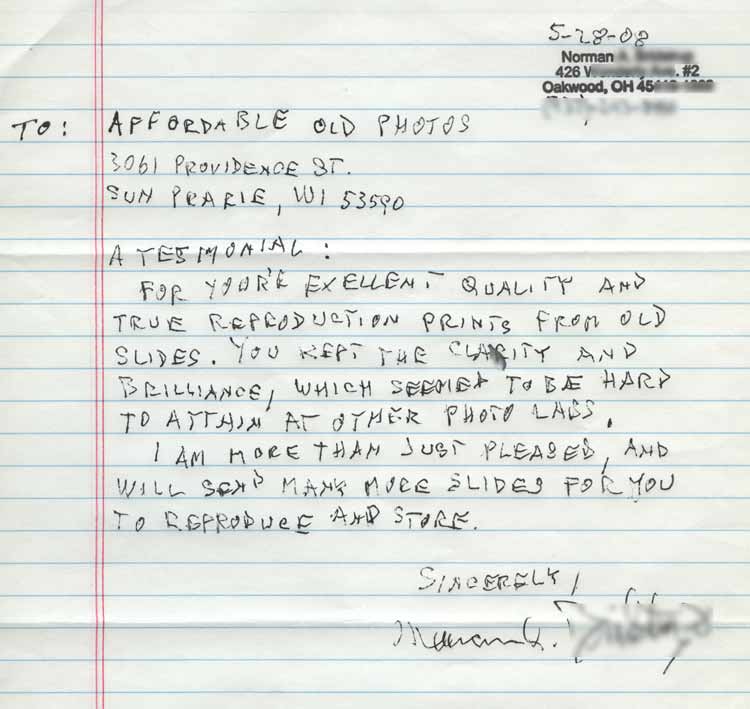 5-28-08
Norman
426 #2
Oakwood, OH 45
TO: AFFORDABLE OLD PHOTOS
3061 PROVIDENCE ST.
SUN PRARIE, WI 53590
A TESTIMONIAL:
FOR YOUR'E EXELLENT QUALITY AND
TRUE REPRODUCTION PRINTS FROM OLD
SLIDES. YOU KEPT THE CLARITY AND
BRILLIANCE, WHICH SEEMED TO BE HARD
TO ATTAIN AT OTHER PHOTO LABS.
I AM MORE THAN JUST PLEASED, AND
WILL SEND MANY MORE SLIDES FOR YOU
TO REPRODUCE AND STORE.
SINCERELY,